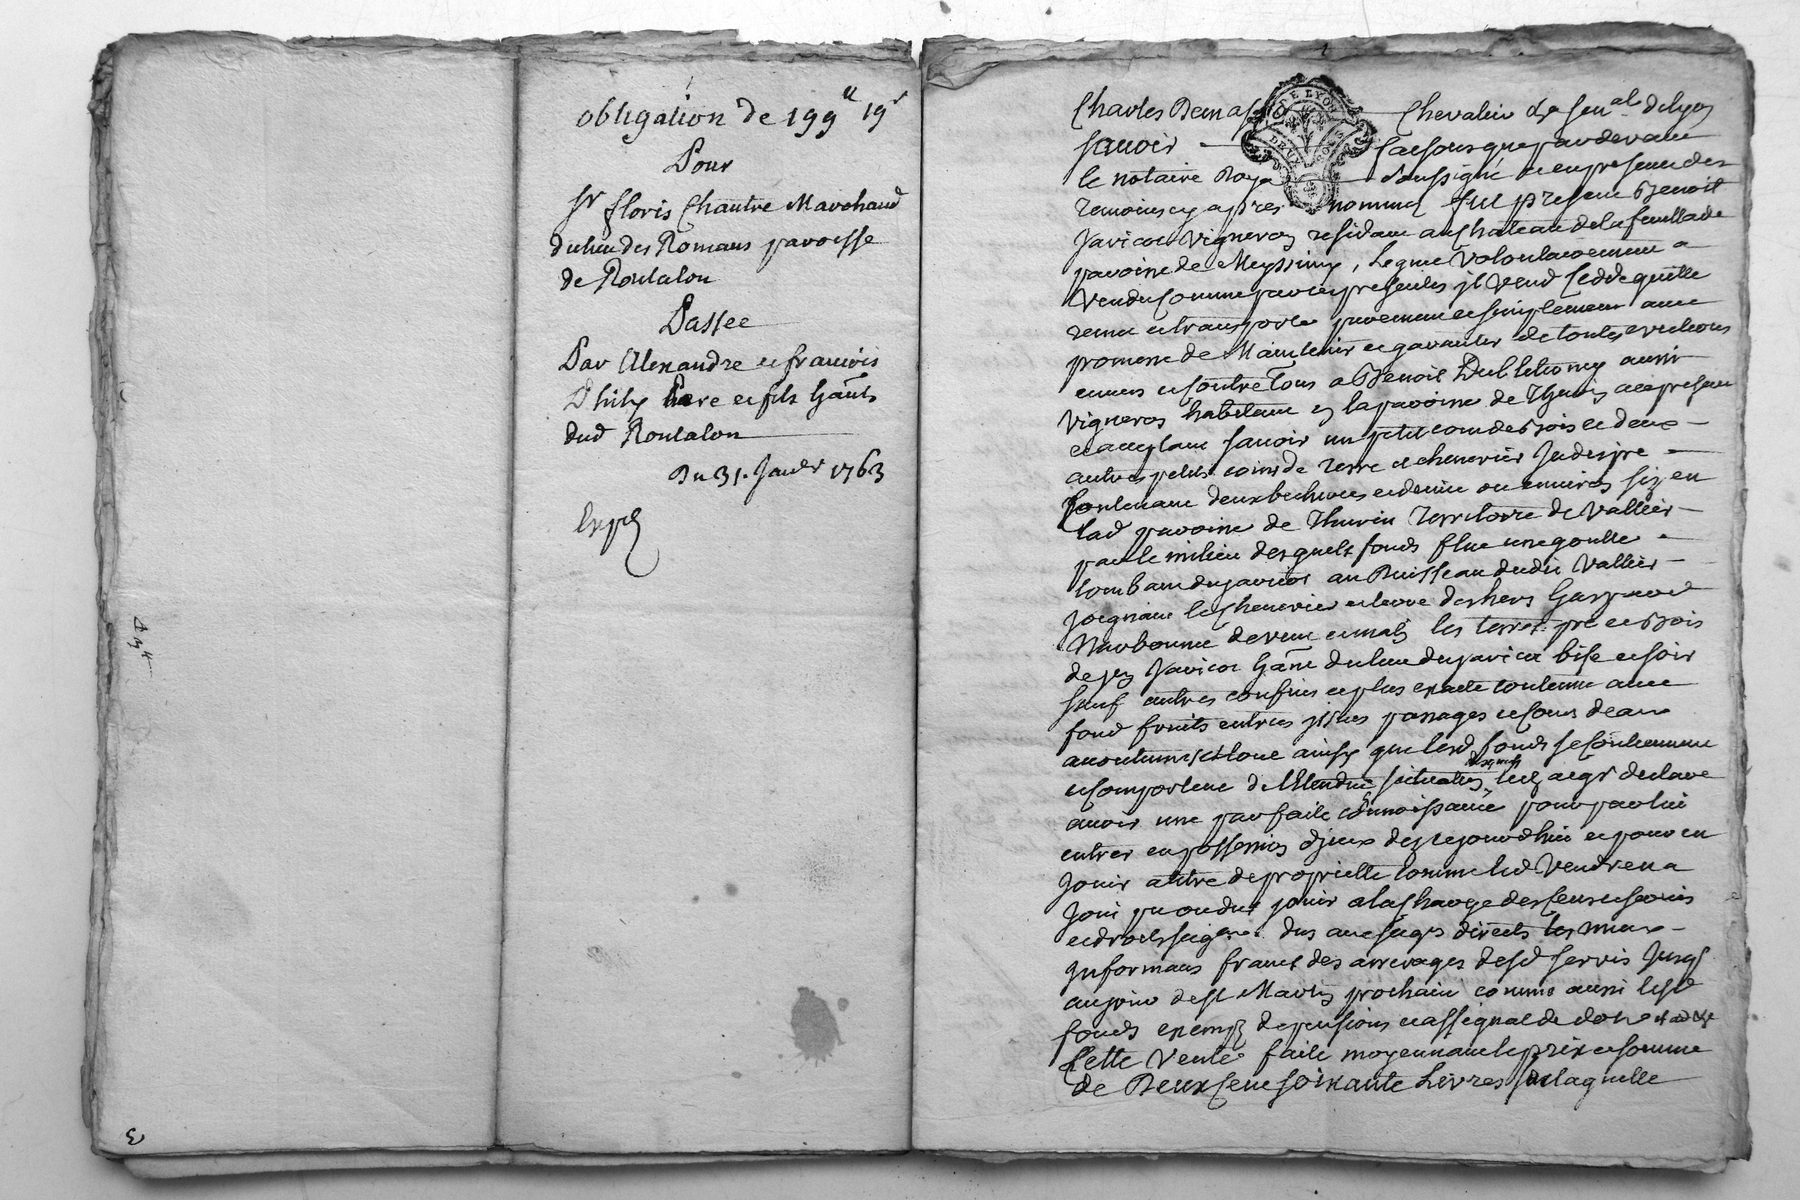 obligation de 199ᵗᵗ 19ˢ
Pour
Sʳ floris Chantre Marchand
du lieu des Romans paroisse
de Rontalon
Passee
Par Alexandre et francois
Philip Pere et fils
dud Rontalon
Du 31. Janvr 1763
Exp
Charles Chevalier senᵃˡ de lyon
savoir faisons que pardevant
le notaire Roya soussigné et en presence des
temoins cy apres nommes fut present Benoit
Javicot Vigneron residant au chateau de la feuillade
paroisse de Meyssimy, lequel volontairement a
vendu comme par ces presentes il vend cedde quitte
remet et transporte purement et simplement avec
promesse de maintenir et garantir de toutes evictions
envers et contre tous a Benoit aussi
vigneron habitant en la paroisse de Thurin present
et acceptant savoir un petit coin de Bois et deux
autres petits coins de terre et chenevier
contenant deux bicherees et demie ou environ size en
lad paroisse de Thurin Territoire de Vallier
par le milieu desquels fonds flue une goutte
tombant du au Ruisseau dudit Vallier
joignant le chenevier et terre des hers Gaspard
Narbonne de vent et matin les terres pré et bois
de Javicot du lieu du Javicot bise et soir
sauf autres confins et plus exacte contenue avec
fond fruits entrees issues passages et cours deaux
accoutumes et tout ainsy que lesd fonds se contiennent
et comportent de letendue situation desquels declare
avoir une parfaite connoissance pour par lui
entrer en possession diceux des ce jourdhui et pour en
jouir a titre de proprietté comme led Vendeur a
joui pu ou du jouir a la charge des cens et servis
et droits seigrˣ dus aux seigrs directs les mieux
informans francs des arrerages desd servis jusqs
au jour de st Martin prochain comme aussi lesd
fonds exempts de pensions et assignat de dot
Cette Vente faite moyennant le prix et somme
de Deux cent soixante Livres sur laquelle